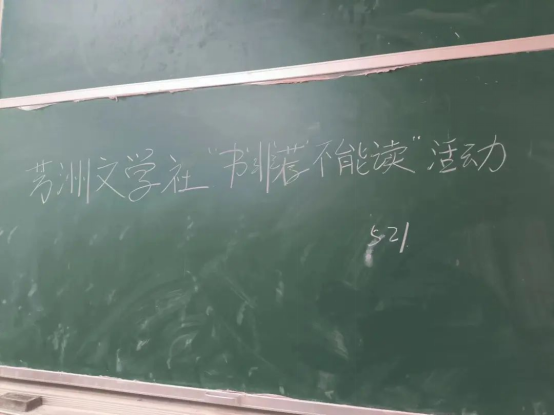 芳洲文学社“书非荐不能读”活动
5.21.